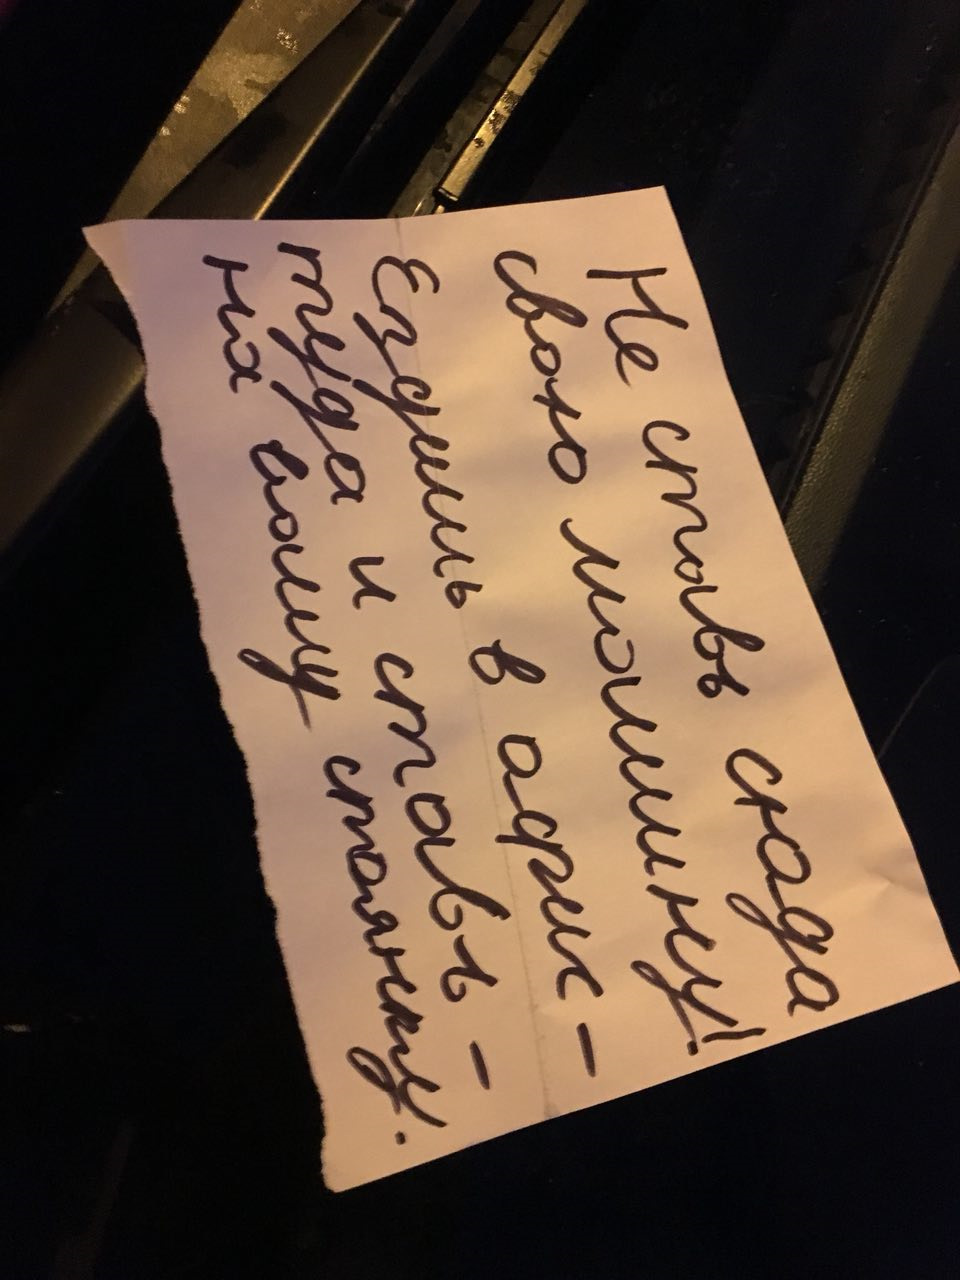 Не ставь сюда
свою машину!
Ездишь в офис –
туда и ставь –
на вашу стоянку.